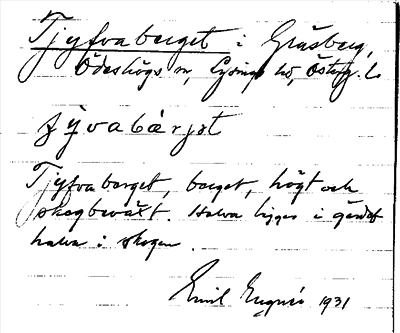 Tjyfvaberget i Gråsberg,
Ödeshögs sn, Lysings hd, Östg. l.
ȷy̆vabárjət
Tjyfvaberget, berget, högt och
skogbeväxt. Halva ligger i gärdet
halva i skogen.
Emil Engnér 1931